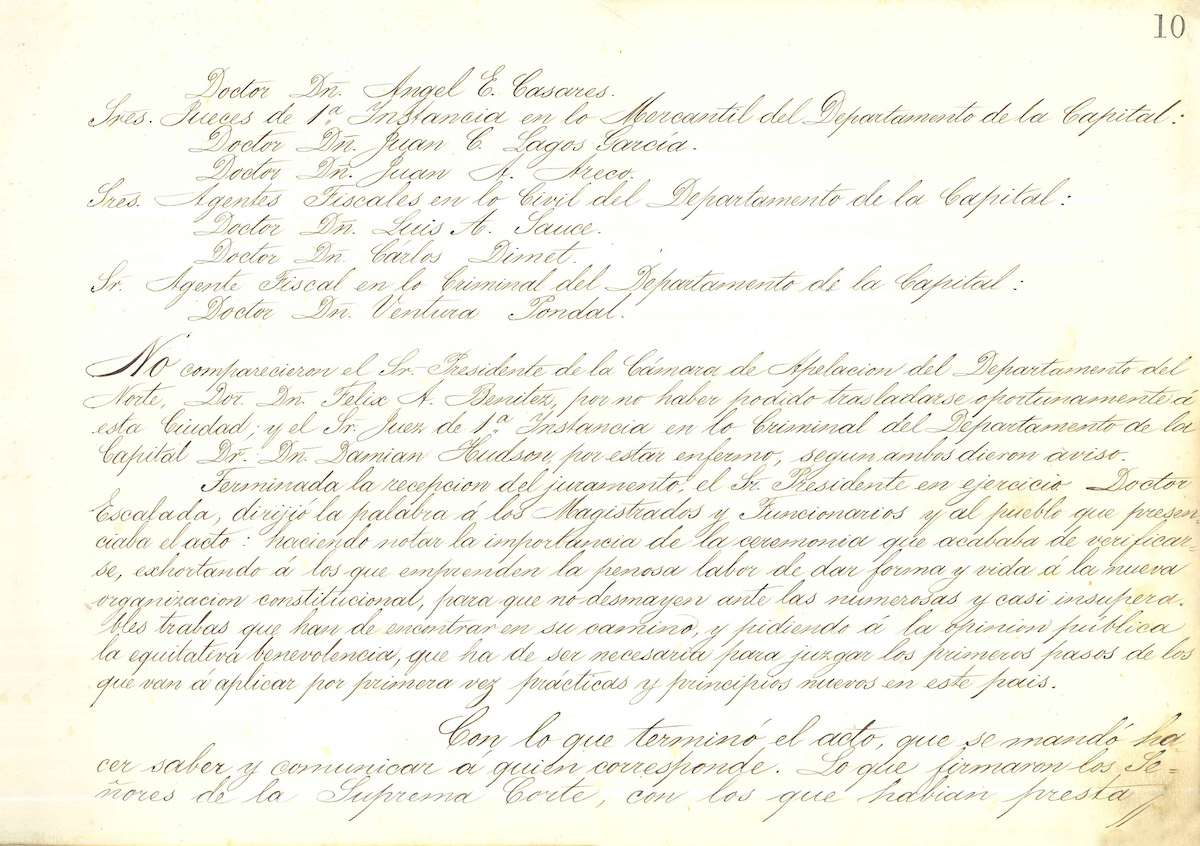 10
Doctor Dn. Angel E. Casares.
Sres. Jueces de 1ª Instancia en lo Mercantil del Departamento de la Capital:
Doctor Dn. Juan C. Lagos García.
Doctor Dn. Juan A. Areco.
Sres. Agentes Fiscales en lo Civil del Departamento de la Capital:
Doctor Dn. Luis A. Sauce.
Doctor Dn. Cárlos Dimet.
Sr. Agente Fiscal en lo Criminal del Departamento de la Capital:
Doctor Dn. Ventura Pondal.
No comparecieron el Sr. Presidente de la Cámara de Apelacion del Departamento del
Norte, Dor. Dn. Felix A. Benitez, por no haber podido trasladarse oportunamente á
esta Ciudad; y el Sr. Juez de 1ª Instancia en lo Criminal del Departamento de la
Capital Dr. Dn. Damian Hudson, por estar enfermo, segun ambos dieron aviso.
Terminada la recepcion del juramento, el Sr. Presidente en ejercicio Doctor
Escalada, dirijió la palabra á los Magistrados y Funcionarios y al pueblo que presen
ciaba el acto: haciendo notar la importancia de la ceremonia que acababa de verificar=
se, exhortando á los que emprenden la penosa labor de dar forma y vida á la nueva
organizacion constitucional, para que no desmayen ante las numerosas y casi insupera.
bles trabas que han de encontrar en su camino, y pidiendo á la opinion pública
la equitativa benevolencia, que ha de ser necesaria para juzgar los primeros pasos de los
que van á aplicar por primera vez prácticas y principios nuevos en este pais.
Con lo que terminó el acto, que se mandó ha
cer saber y comunicar á quien corresponde. Lo que firmaron los Se=
ñores de la Suprema Corte, con los que habian presta //